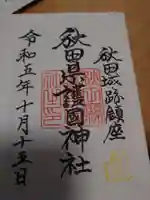 秋田城跡鎮座
秋田県護國神社
令和五年十月十五日